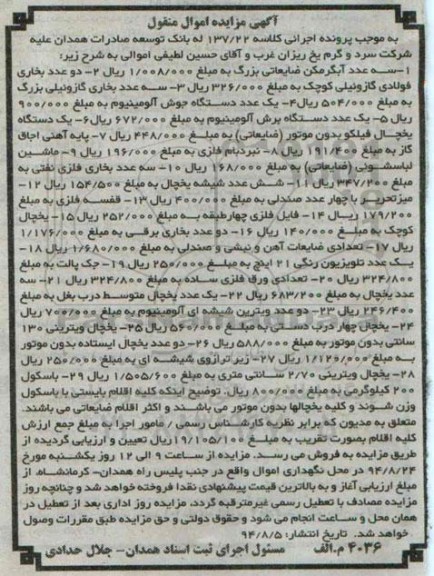 آگهی مزایده اموال منقول
به موجب پرونده اجرائی کلاسه ۱۳۷/۲۲ له بانک توسعه صادرات همدان علیه
شرکت سرد و گرم یخ ریزان غرب و آقای حسین لطیفی اموالی به شرح زیر:
۱-سه عدد آبگرمکن ضایعاتی بزرگ به مبلغ ۱/۰۰۸/۰۰۰ ریال ۲- دو عدد بخاری
فولادی گازوئیلی کوچک به مبلغ ۳۲۶/۰۰۰ ریال ۳- سه عدد بخاری گازوئیلی بزرگ
به مبلغ ۵۰۴/۰۰۰ ریال ۴- یک عدد دستگاه جوش آلومینیوم به مبلغ ۹۰۰/۰۰۰
ریال ۵- یک عدد دستگاه برش آلومینیوم به مبلغ ۶۷۲/۰۰۰ ریال ۶- یک دستگاه
یخچال فیلکو بدون موتور (ضایعاتی) به مبلغ ۴۴۸/۰۰۰ ریال ۷- پایه آهنی اجاق
گاز به مبلغ ۱۹۱/۴۰۰ ریال ۸- نبردبام فلزی به مبلغ ۱۹۶/۰۰۰ ریال ۹- ماشین
لباسشوئی (ضایعاتی) به مبلغ ۱۶۸/۰۰۰ ریال ۱۰- سه عدد بخاری فلزی نفتی به
مبلغ ۳۴۷/۲۰۰ ریال ۱۱- شش عدد شیشه یخچال به مبلغ ۱۵۴/۵۰۰ ریال ۱۲-
میزتحریر با چهار عدد صندلی به مبلغ ۴۰۰/۰۰۰ ریال ۱۳- قفسه فلزی به مبلغ
۱۷۹/۲۰۰ ریال ۱۴- فایل فلزی چهارطبقه به مبلغ ۲۵۲/۰۰۰ ریال ۱۵- یخچال
کوچک به مبلغ ۱۴۰/۰۰۰ ریال ۱۶- دو عدد بخاری برقی به مبلغ ۱/۱۷۶/۰۰۰
ریال ۱۷- تعدادی ضایعات آهن و نبشی و صندلی به مبلغ ۱/۶۸۰/۰۰۰ ریال ۱۸-
یک عدد تلویزیون رنگی ۲۱ اینچ به مبلغ ۲۵۰/۰۰۰ ریال ۱۹- جک پالت به مبلغ
۳۲۴/۸۰۰ ریال ۲۰- تعدادی ورق فلزی ساده به مبلغ ۳۲۴/۸۰۰ ریال ۲۱- سه
عدد یخچال به مبلغ ۶۸۳/۲۰۰ ریال ۲۲- یک عدد یخچال متوسط درب بغل به مبلغ
۲۴۶/۴۰۰ ریال ۲۳- دو عدد ویترین شیشه ای آلومینیوم به مبلغ ۷۰۰/۰۰۰ ریال
۲۴- یخچال چهار درب دستی به مبلغ ۵۶۰/۰۰۰ ریال ۲۵- یخچال ویترینی ۱۳۰
سانتی بدون موتور به مبلغ ۵۸۸/۰۰۰ ریال ۲۶- دو عدد یخچال ایستاده بدون موتور
به مبلغ ۱/۱۲۶/۰۰۰ ریال ۲۷- زیر ترازوی شیشه ای به مبلغ ۲۵۰/۰۰۰ ریال
۲۸- یخچال ویترینی ۲/۷۰ سانتی متری به مبلغ ۱/۵۰۵/۶۰۰ ریال ۲۹- باسکول
۲۰۰ کیلوگرمی به مبلغ ۸۰۰/۰۰۰ ریال. توضیح اینکه کلیه اقلام بایستی با باسکول
وزن شوند و کلیه یخچالها بدون موتور می باشند و اکثر اقلام ضایعاتی می باشند.
متعلق به مدیون که برابر نظریه کارشناس رسمی / مامور اجرا به مبلغ جمع ارزش
کلیه اقلام بصورت تقریب به مبلغ ۱۹/۱۰۵/۱۰۰ ریال تعیین و ارزیابی گردیده از
طریق مزایده به فروش می رسد. مزایده از ساعت ۹ الی ۱۲ روز یکشنبه مورخ
۹۴/۸/۲۴ در محل نگهداری اموال واقع در جنب پلیس راه همدان- کرمانشاه، از
مبلغ ارزیابی آغاز و به بالاترین قیمت پیشنهادی نقدا فروخته خواهد شد و چنانچه روز
مزایده مصادف با تعطیل رسمی غیرمترقبه گردد، مزایده روز اداری بعد از تعطیل در
همان محل و ساعت انجام می شود و حقوق دولتی و حق مزایده طبق مقررات وصول
خواهد شد. تاریخ انتشار: ۹۴/۸/۵
۴۰۳۶ م.الف مسئول اجرای ثبت اسناد همدان- جلال حدادی